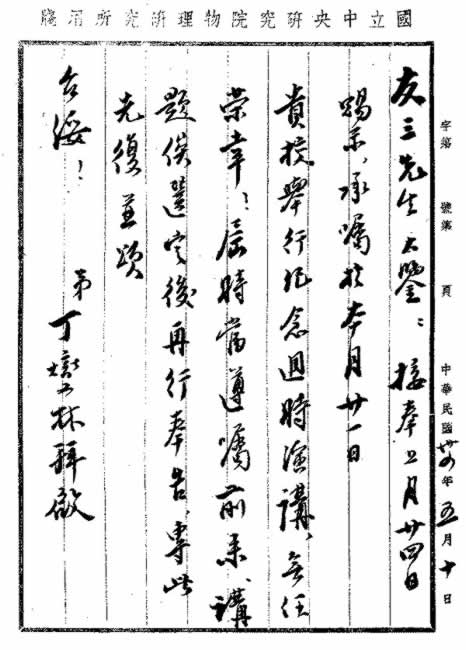 國立中央研究院物理研究所用牋
字第　號第　頁　中華民國卅四年五月十日
友三先生大鑒：接奉上月廿四日
賜示，承囑於本月廿一日
貴校舉行紀念週時演講，無任
榮幸！屆時當遵囑前來、講
題俟選定後再行奉告，專此
先復並頌
台綏！
弟丁燮林拜啟